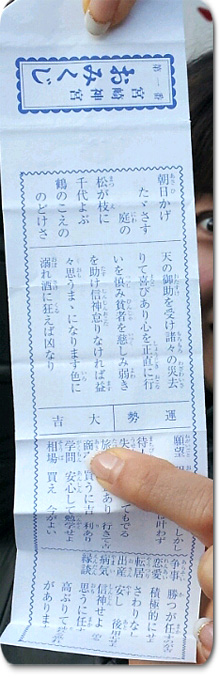 第一番
宮崎神宮
おみくじ
朝日かげ
たゞさす
庭の
松が枝に
千代よぶ
鶴のこえの
のどけさ
天の御助を受け諸々の災去
りて喜びあり心を正直に行
いを慎み貧者を慈しみ弱き
を助け信神怠りなければ益
々思うまゝになります色に
溺れ酒に狂えば凶なり
運勢 大吉
願望
叶わず
待
失
でも
旅 あり 行き
商 買うに吉 利あり
学問 安心して勉学せよ
相場 買え 今がよい
争事 勝つが
恋愛 積極的にせ
転居 さわりなし
出産 安し
病気 信神せよ
縁談 思うに任
高ぶりて
があります